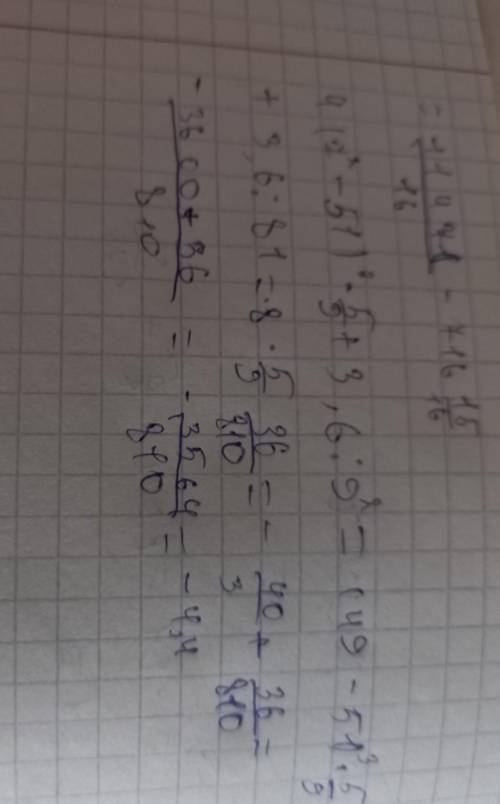 = 11471/16 - 716 15/16
4) (7² - 51)³ · 5/9 + 3,6 : 9² = (49 - 51)³ · 5/9
+ 3,6 : 81 = -8 · 5/9 36/810 = - 40/3 + 36/810 =
- 3600 + 36/810 = - 3564/810 = - 4,4